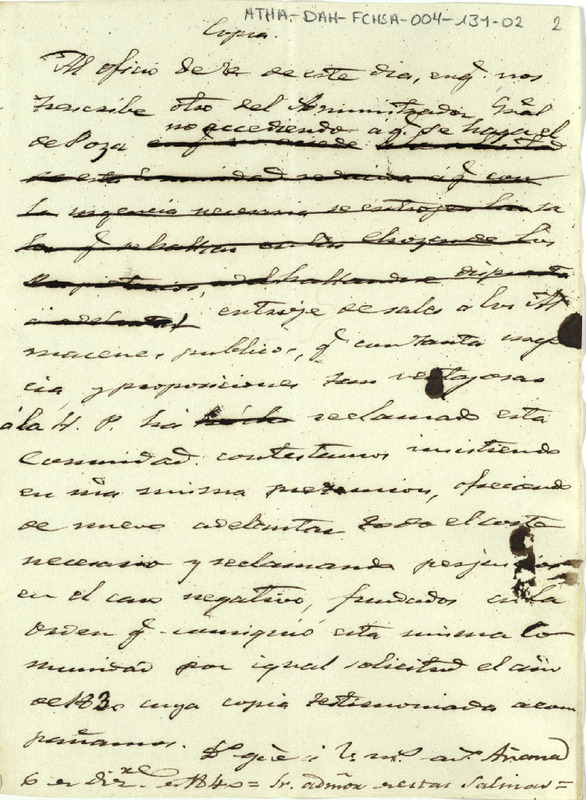 ATHA-DAH-FCHSA-004-131-02 2
Copia
Al oficio de V. de este dia, en q.e nos
trascribe otro del Administrador Gral
no accediendo a q.e se haga el
de Poza
de esta comunidad q.e con
la urgencia necesaria se entrojen la sa
entroje de sales a los Al
macenes publicos, q.e con tanta urgen
cia y proposiciones tan ventajosas
á la H. P. há reclamado esta
Comunidad contestamos insistiendo
en nra misma pretension, ofreciendo
de nuevo adelantar todo el coste
necesario y reclamando perjuicios
en el caso negativo, fundados en la
orden q.e consiguió esta misma co
munidad por igual solicitud el año
de 183 cuya copia testimoniada acom
pañamos. D.s gũe á V. m.s a.s Añana
6 de Diz.re de 1840= Sr. admor de estas Salinas=